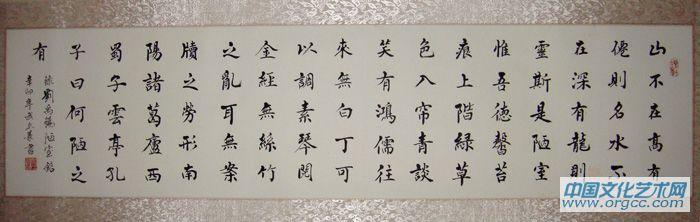 山不在高有
僊則名水不
在深有龍則
靈斯是陋室
惟吾德馨苔
痕上階緑草
色入帘青談
笑有鴻儒往
來無白丁可
以調素琴閱
金經無絲竹
之亂耳無案
牘之勞形南
陽諸葛廬西
蜀子雲亭孔
子曰何陋之
有
錄劉禹錫陋室銘
辛卯年 書
中国文化艺术网
www.orgcc.com